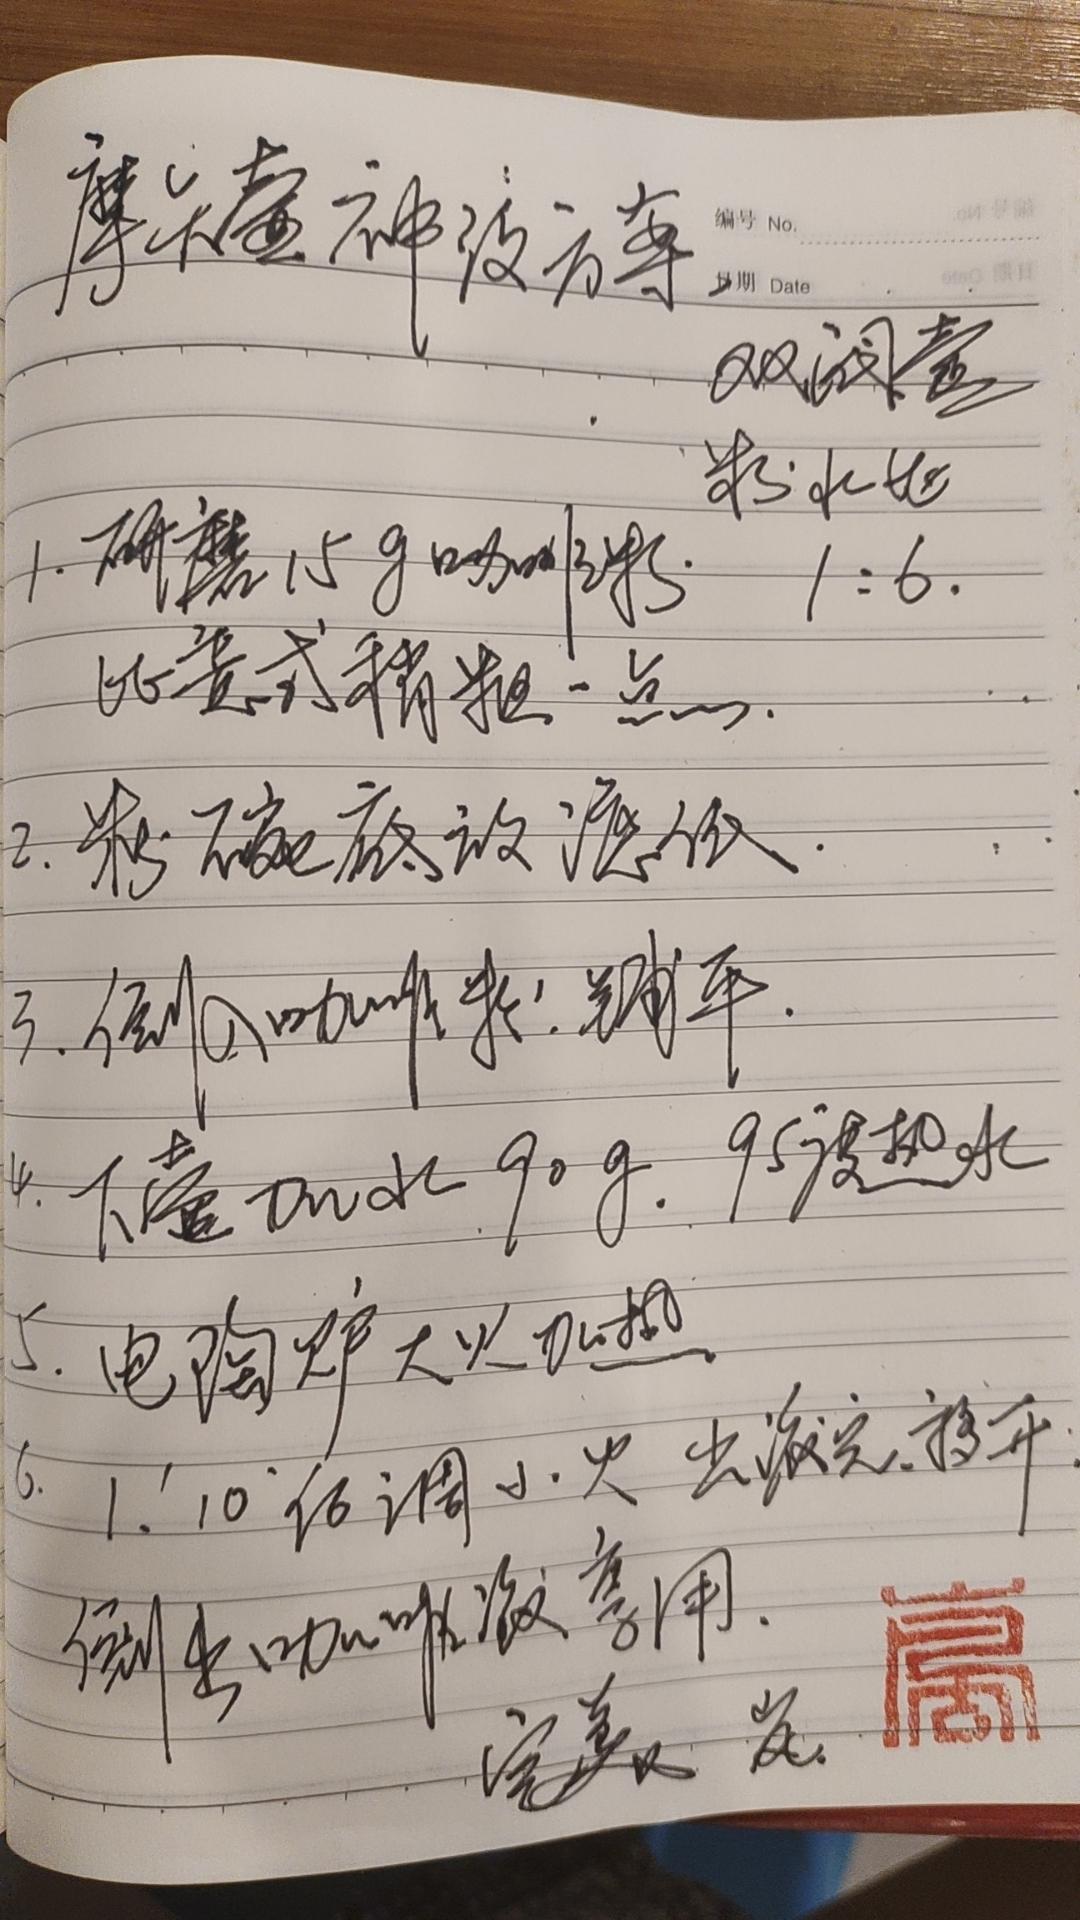 摩卡壶冲液方案
编号 No.
日期 Date
双阀壶
粉水比
1:6.
1. 研磨15g咖啡粉.
比意式稍粗一点.
2. 粉碗底放滤纸.
3. 倒入咖啡粉.铺平.
4. 下壶加水 90g. 95度热水
5. 电陶炉大火加热
6. 1.'10"后调小火 出液完.移开.
倒出咖啡液享用.
完美